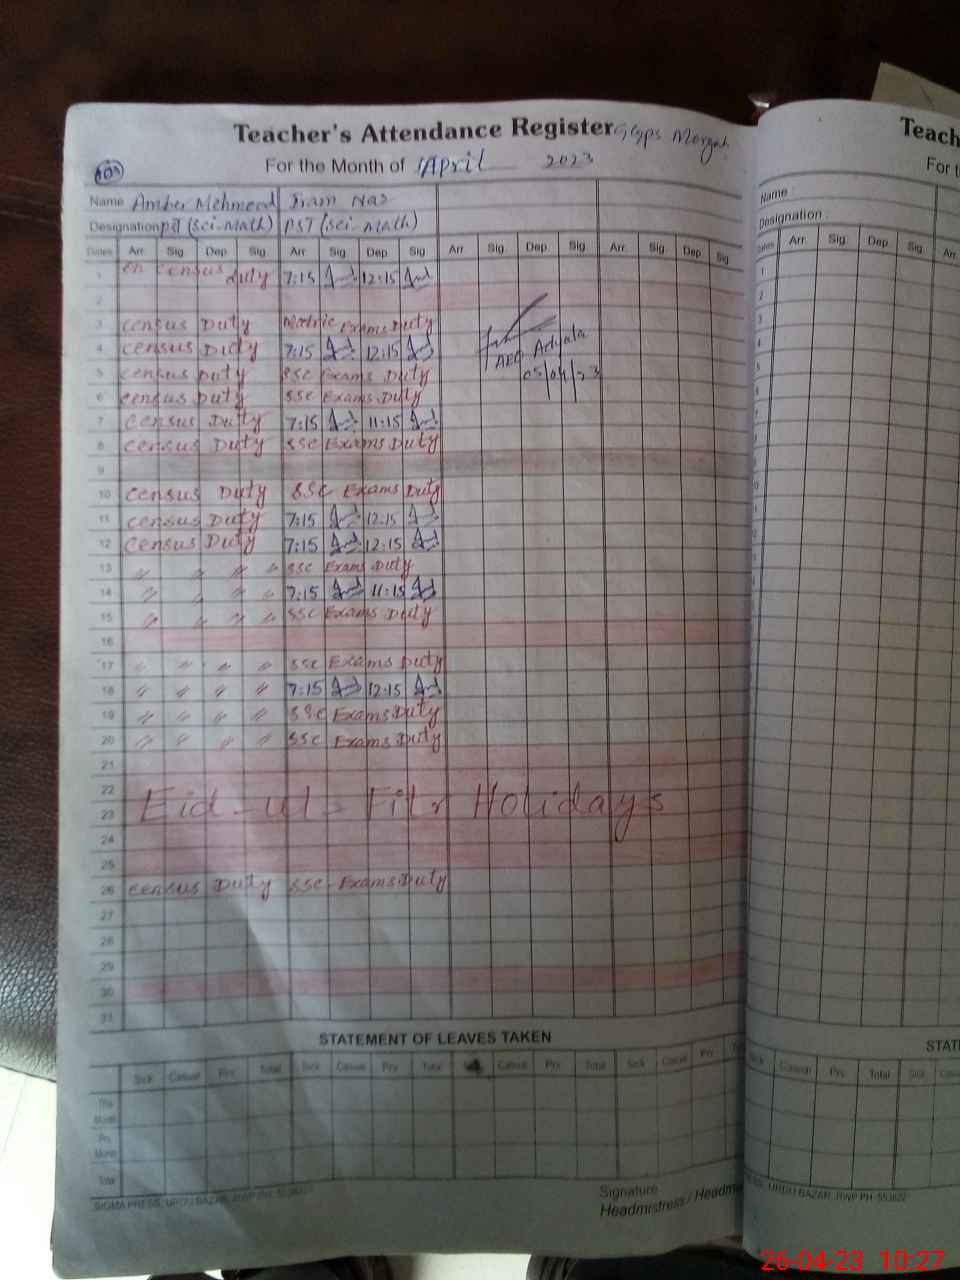 Teacher's Attendance Register GGPS Morgah
For the Month of April 2023
103
Name Amber Mehmood Iram Naz
Designation PST (Sci-Math) PST (Sci-Math)
Dates Arr. Sig. Dep. Sig. Arr. Sig. Dep. Sig. Arr. Sig. Dep. Sig. Arr. Sig. Dep. Sig.
1 On Census Duty 7:15 12:15
2
3 Census Duty Matric Exams Duty
4 Census Duty 7:15 12:15
AEO Adyala
5 Census Duty SSC Exams Duty 05/04/23
6 Census Duty SSC Exams Duty
7 Census Duty 7:15 11:15
8 Census Duty SSC Exams Duty
9
10 Census Duty SSC Exams Duty
11 Census Duty 7:15 12:15
12 Census Duty 7:15 12:15
13 〃 〃 〃 〃 SSC Exams Duty
14 〃 〃 〃 〃 7:15 11:15
15 〃 〃 〃 〃 SSC Exams Duty
16
17 〃 〃 〃 〃 SSC Exams Duty
18 〃 〃 〃 〃 7:15 12:15
19 〃 〃 〃 〃 SSC Exams Duty
20 〃 〃 〃 〃 SSC Exams Duty
21
22
23 Eid-ul-Fitr Holidays
24
25
26 Census Duty SSC Exams Duty
27
28
29
30
31
STATEMENT OF LEAVES TAKEN
Sick Casual Prv. Total Sick Casual Prv. Total Casual Prv. Total Sick Casual Prv.
This Month
Prv. Month
Total
SIGMA PRESS, URDU BAZAR, RWP PH:
Signature
Headmistress / Headm
Teach
For t
Name :
Designation :
Dates Arr. Sig. Dep. Sig. Arr.
1
2
3
4
5
6
7
8
STAT
Sick Casual Prv. Total Sick
URDU BAZAR, RWP PH-553822
26-04-23 10:27